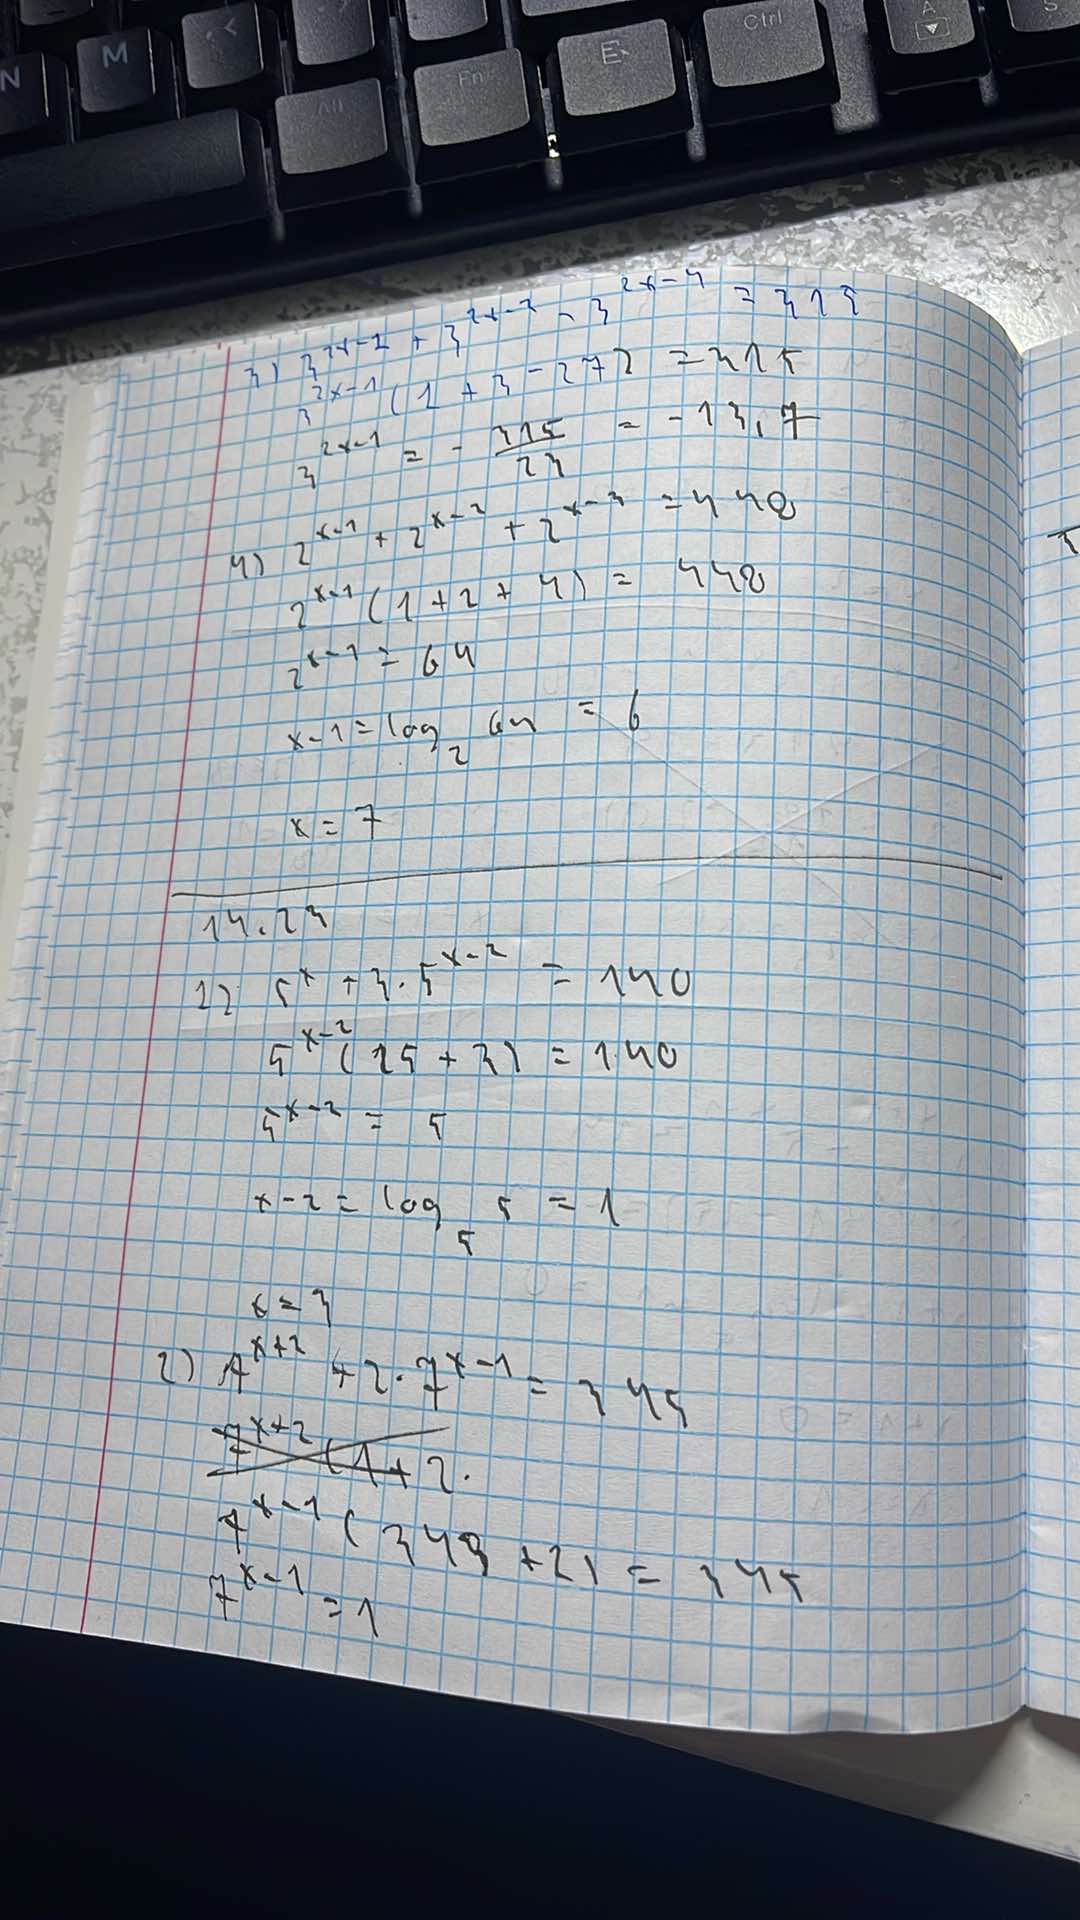 N
M
Alt
Fn
E
Ctrl
A
S
3) 3^{2x-1} + 3^{2x-2} - 3^{2x-4} = 315
3^{2x-1} (1 + 3 - 27) = 315
3^{2x-1} = - 315/23 = -13,7
4) 2^{x-1} + 2^{x-2} + 2^{x-3} = 448
2^{x-1} (1 + 2 + 4) = 448
2^{x-1} = 64
x-1 = log_2 64 = 6
x = 7
14.23
1) 5^x + 3 · 5^{x-2} = 140
5^{x-2} (25 + 3) = 140
5^{x-2} = 5
x-2 = log_5 5 = 1
x = 3
2) 7^{x+2} + 2 · 7^{x-1} = 345
7^{x+2} (1 + 2 ·
7^{x-1} (343 + 2) = 345
7^{x-1} = 1